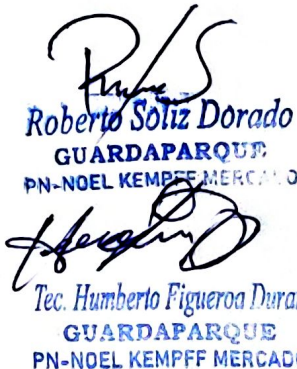 Roberto Soliz Dorado
GUARDAPARQUE
PN-NOEL KEMPFF MERCADO
Tec. Humberto Figueroa Duran
GUARDAPARQUE
PN-NOEL KEMPFF MERCADO